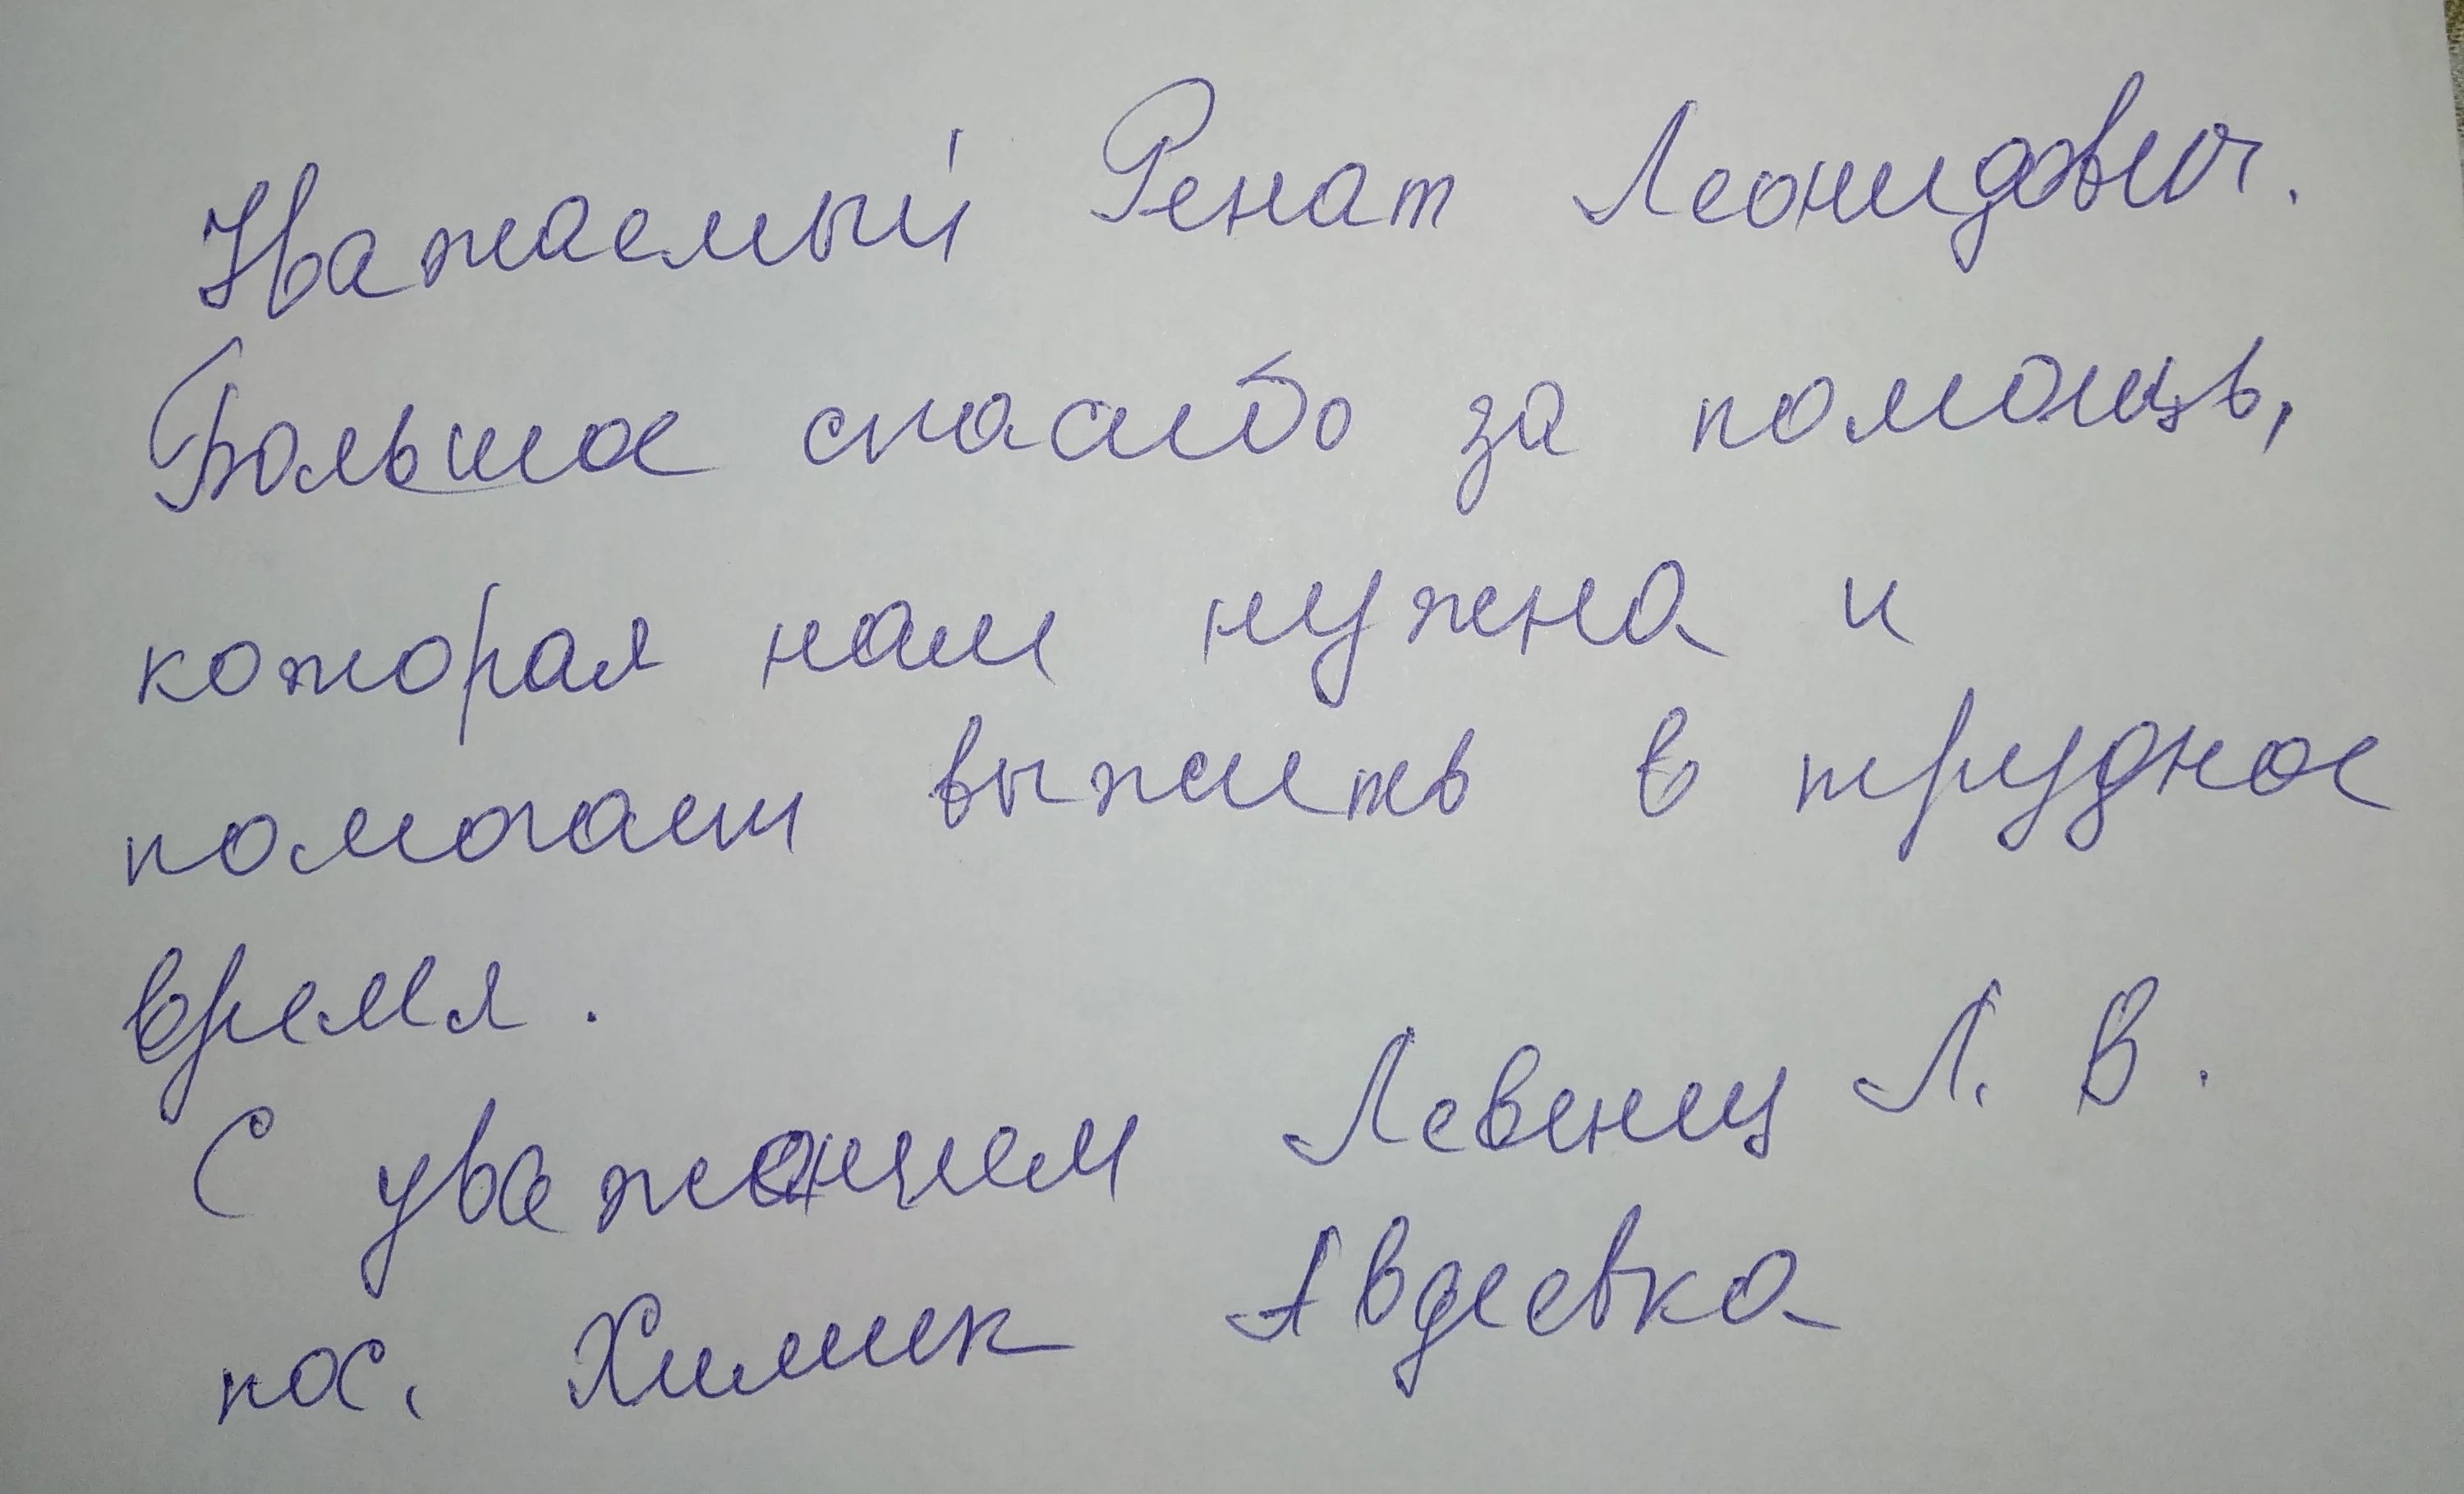 Уважаемый Ренат Леонидович.
Большое спасибо за помощь,
которая нам нужна и
помогает выжить в трудное
время.
С уважением Левенец Л. В.
пос. Химик Авдеевка